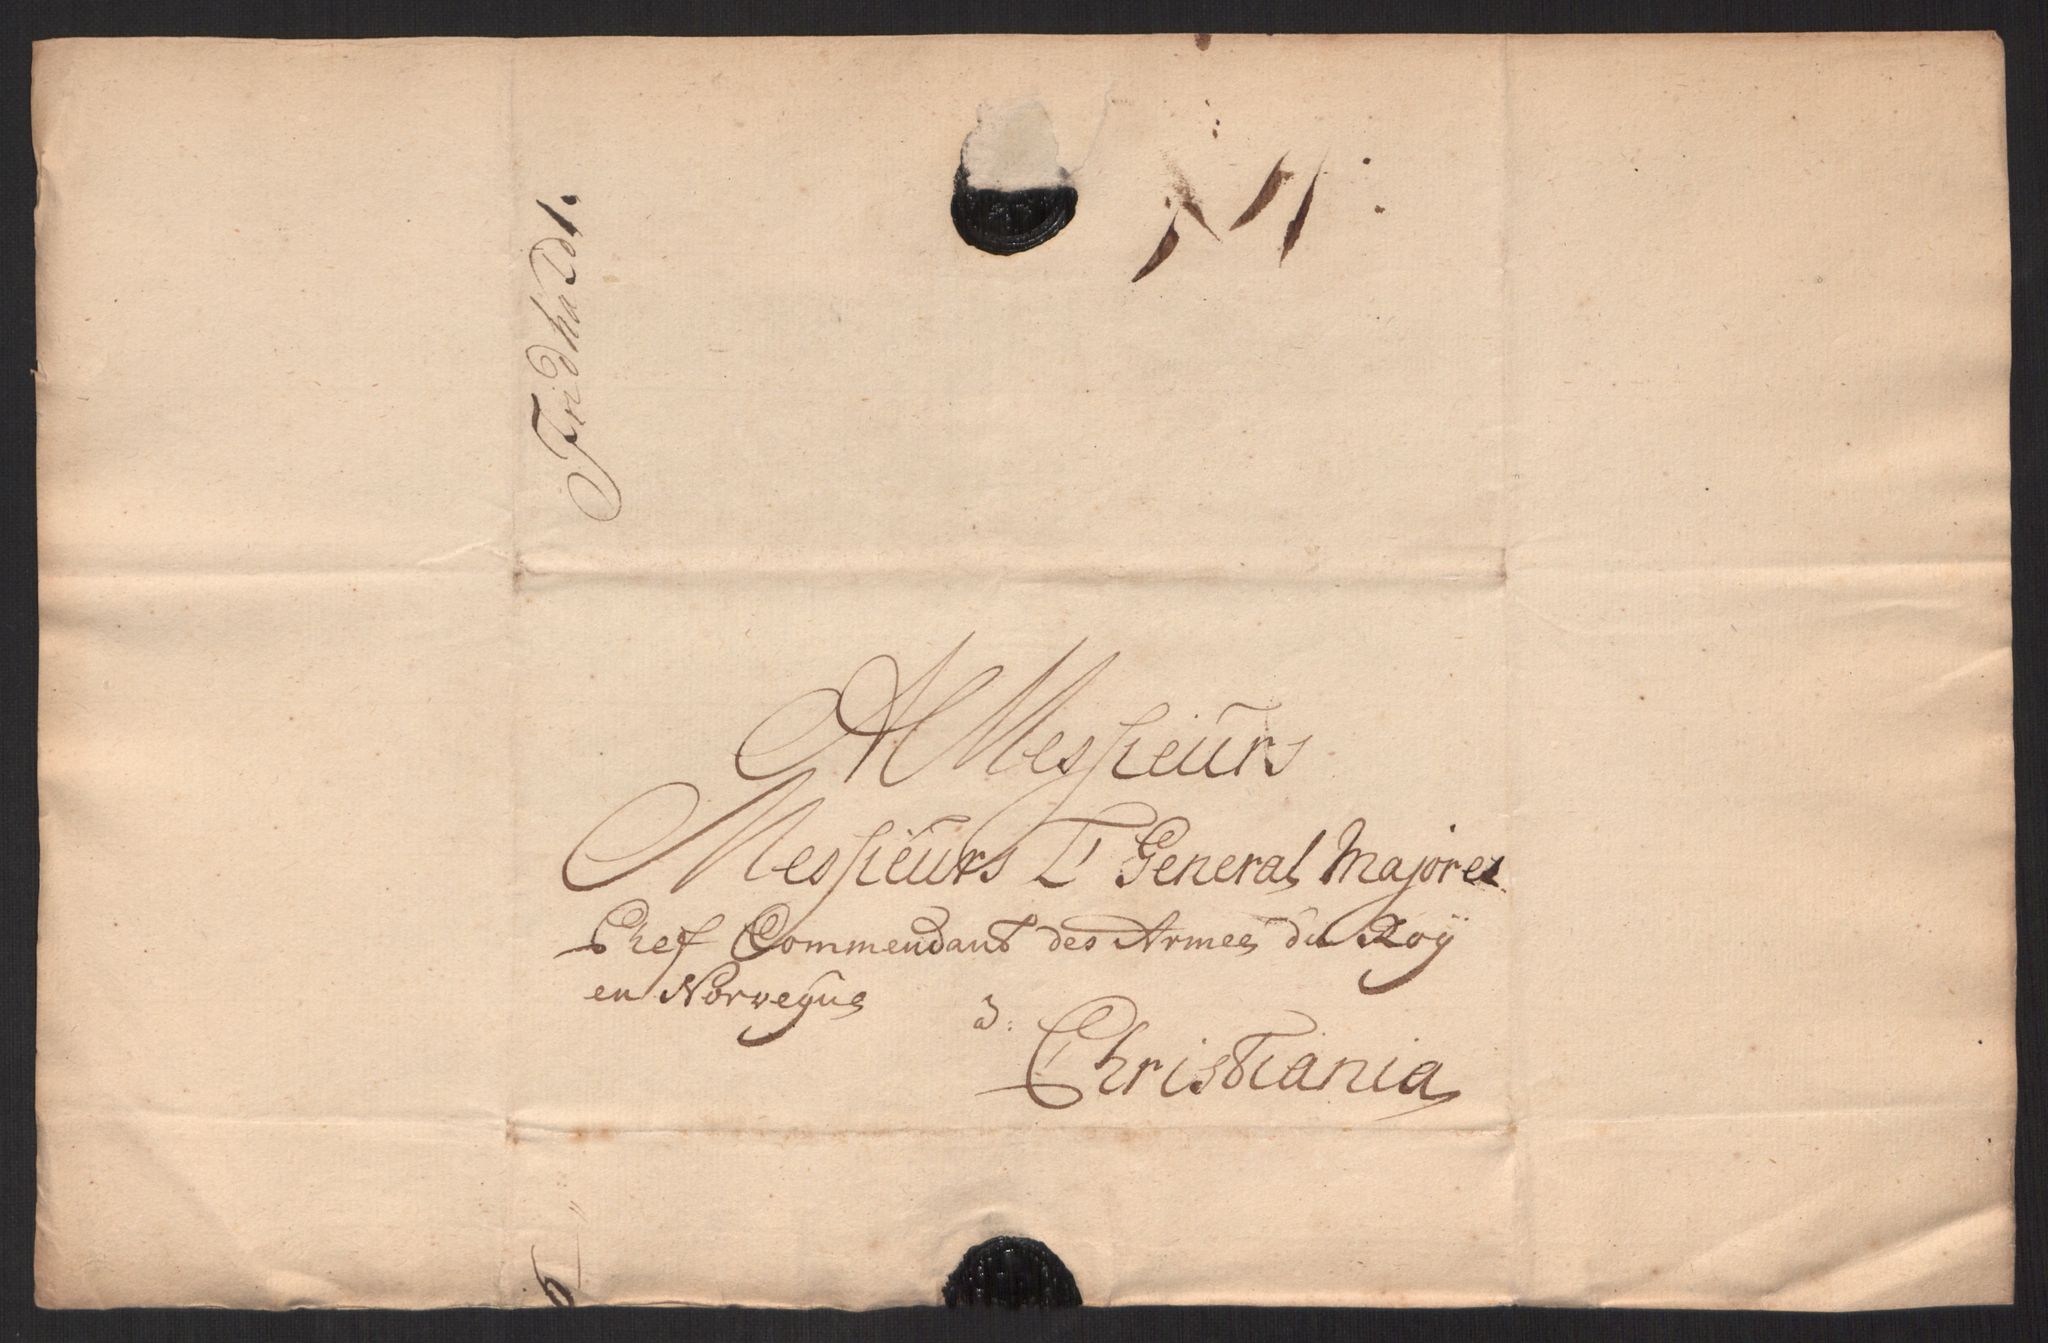 Fridhaldt.
A Messieurs
Messieurs L' General Majores
Chef Commendant des Armees du Roÿ
en Norvegue
a:
Christiania